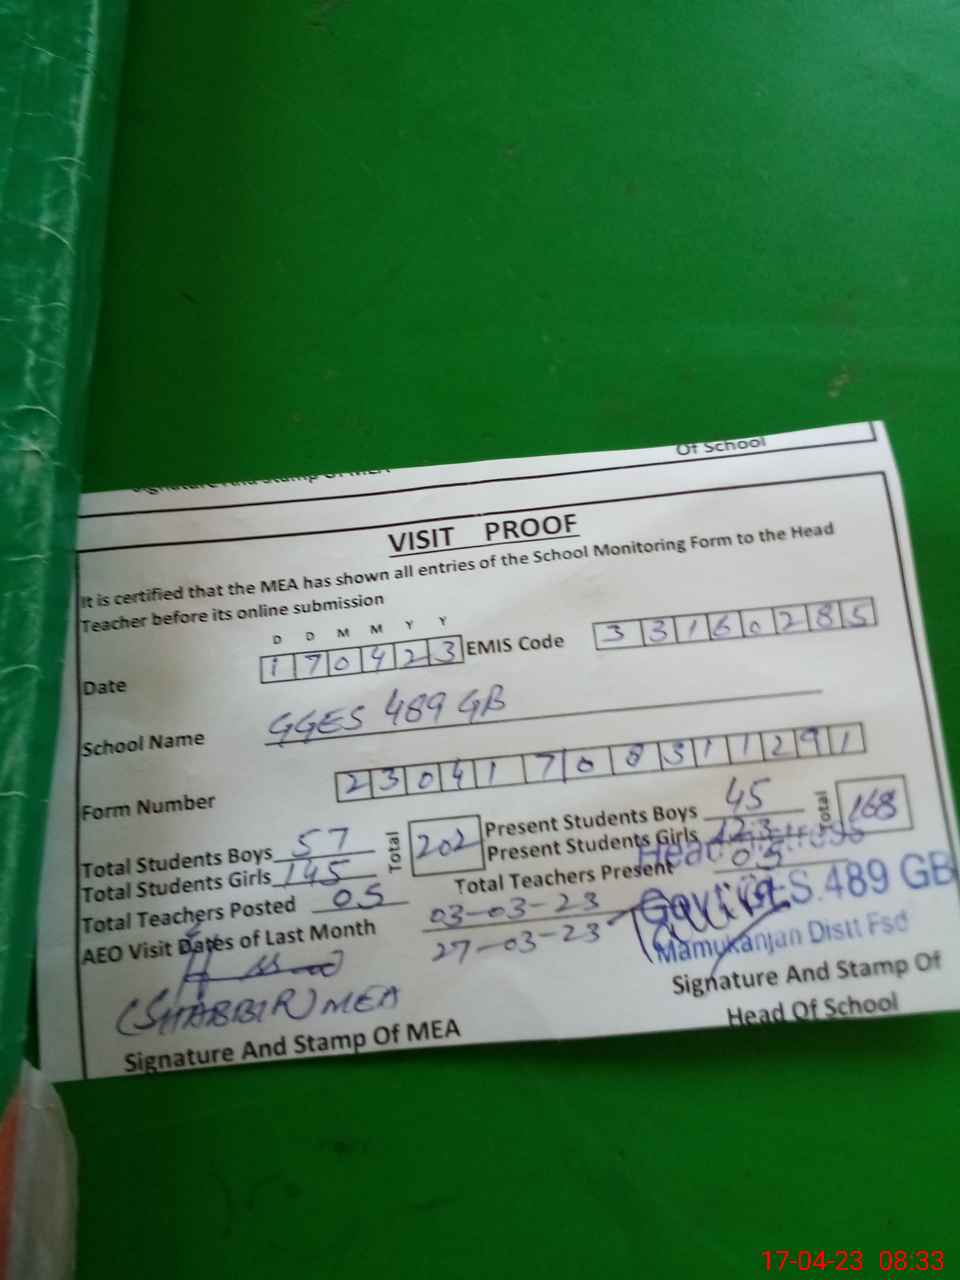 Signature And Stamp Of MEA
Of School
VISIT PROOF
It is certified that the MEA has shown all entries of the School Monitoring Form to the Head
Teacher before its online submission
D D M M Y Y
Date 170423 EMIS Code 33160285
School Name GGES 489 GB
Form Number 23041708311291
Total Students Boys 57 Total 202 Present Students Boys 45 Total 168
Total Students Girls 145 Present Students Girls 123
Total Teachers Posted 05 Total Teachers Present 05
AEO Visit Dates of Last Month 03-03-23
27-03-23
Headmistress
Govt. G.E.S. 489 GB
Mamukanjan Distt Fsd
(SHABBIR) MEA
Signature And Stamp Of MEA
Signature And Stamp Of
Head Of School
17-04-23 08:33